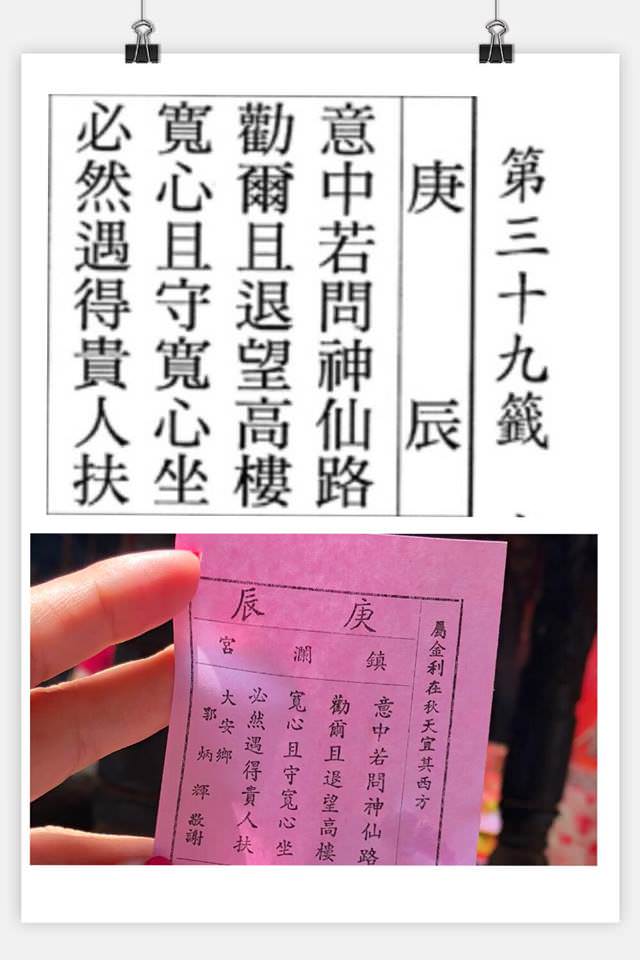 第三十九籤
庚辰
意中若問神仙路
勸爾且退望高樓
寬心且守寬心坐
必然遇得貴人扶
屬金利在秋天宜其西方
庚辰
鎮瀾宮
意中若問神仙路
勸爾且退望高樓
寬心且守寬心坐
必然遇得貴人扶
大安鄉
郭炳輝敬謝